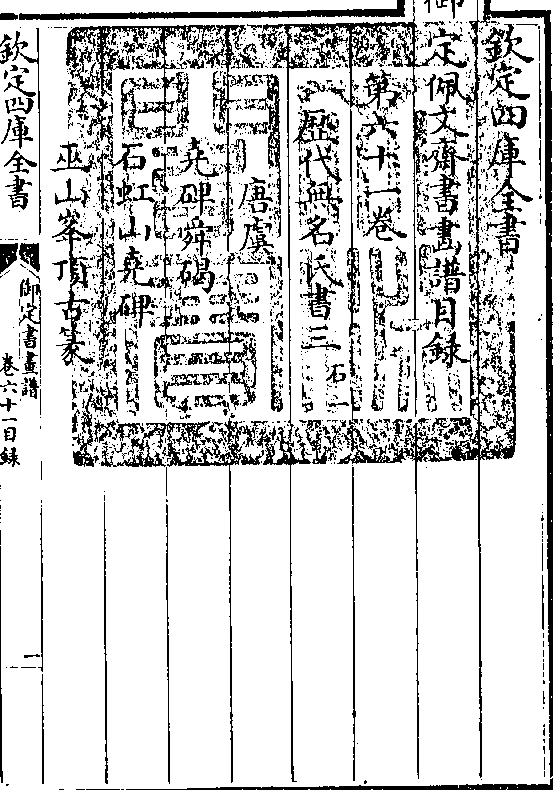 欽定四庫全書
御定佩文齋書畫譜目録
第六十一卷
歷代無名氏書三石一
唐虞
堯碑舜碣
石虹山堯碑
巫山峯頂古篆
欽定四庫全書
御定書畫譜
卷六十一目録
一